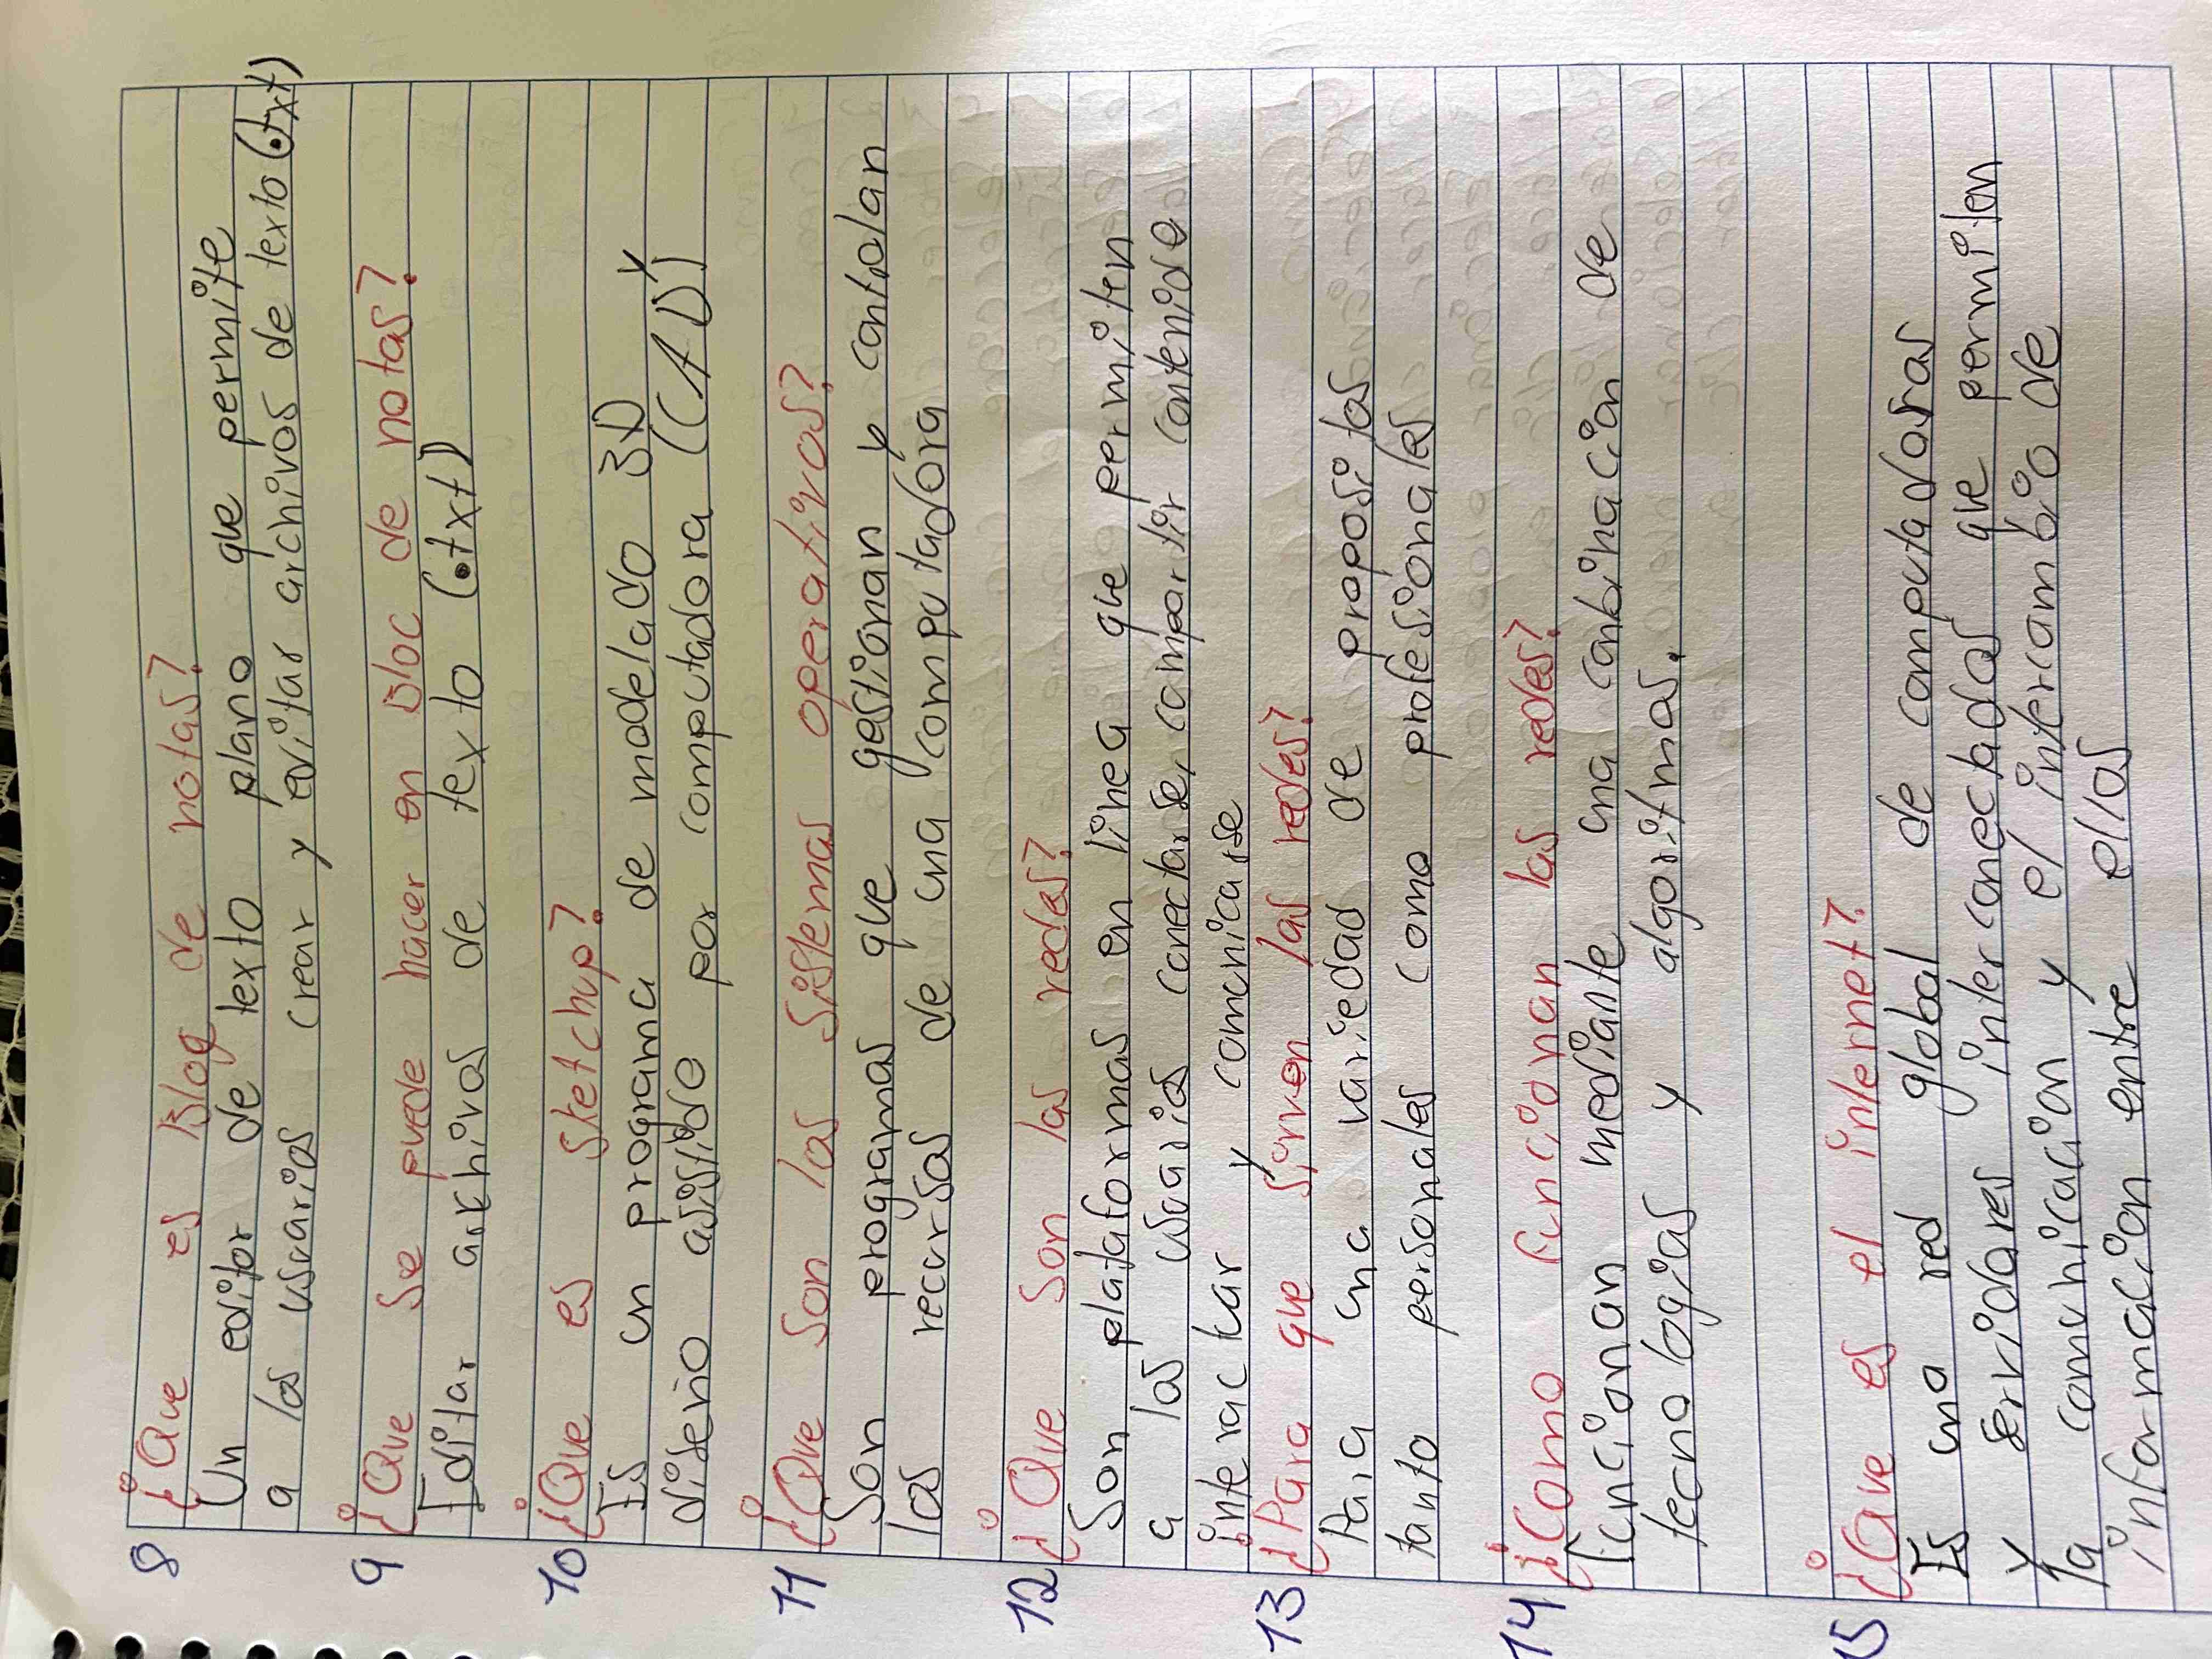 8 ¿Que es Blog de notas?
Un editor de texto plano que permite
a los usuarios crear y editar archivos de texto (.txt)
9 ¿Que se puede hacer en Bloc de notas?
Editar archivos de texto (.txt)
10 ¿Que es sketchup?
Es un programa de modelado 3D y
diseño asistido por computadora (CAD)
11 ¿Que son los sistemas operativos?
Son programas que gestionan y controlan
los recursos de una computadora
12 ¿Que son las redes?
Son plataformas en linea que permiten
a los usuarios conectarse, compartir contenido
interactuar y comunicarse
13 ¿Para que sirven las redes?
Para una variedad de propositos
tanto personales como profesionales
14 ¿Como funcionan las redes?
funcionan mediante una conbinacion de
tecnologias y algoritmos.
15 ¿Que es el internet?
Es una red global de computadoras
y servidores interconectados que permiten
la comunicacion y el intercambio de
informacion entre ellos